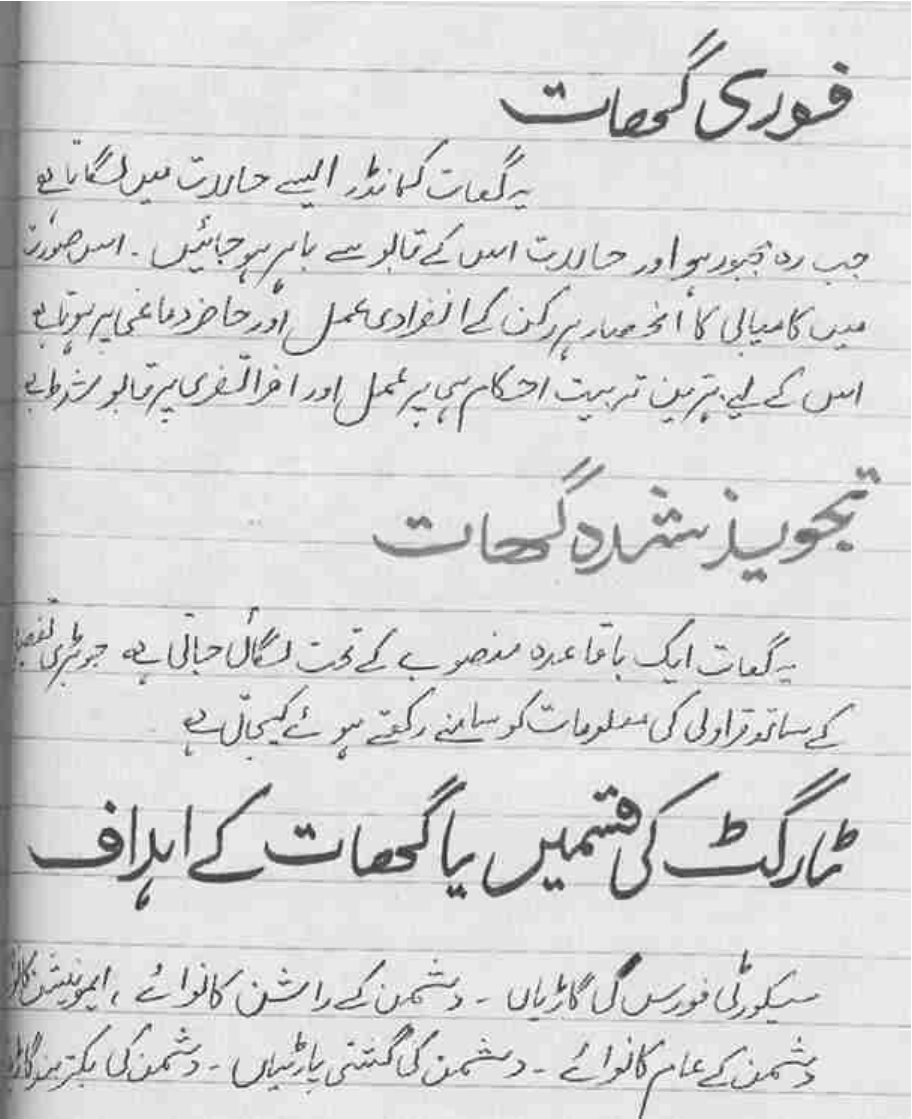 فوری گھات
یہ گھات کمانڈر ایسے حالات میں لگاتا ہے
جب وہ مجبور ہو اور حالات اس کے قابو سے باہر ہو جائیں ۔ اس صورت
میں کامیابی کا انحصار ہر رکن کے انفرادی عمل اور حاضر دماغی پر ہوتا ہے
اس کے لیے بہترین تربیت احکام ہی پر عمل اور افراتفری پر قابو شرط ہے
تجویذ شدہ گھات
یہ گھات ایک باقاعدہ منصوبے کے تحت لگائی جاتی ہے جو بڑی
کے ساتھ قراولی کی معلومات کو سامنے رکھتے ہوئے کیجاتی ہے
ٹارگٹ کی قسمیں یا گھات کے اہداف
سیکورٹی فورس کی گاڑیاں ۔ دشمن کے راشن کانوائے ، ایمونیشن
دشمن کے عام کانوائے ۔ دشمن کی گشتی پارٹیاں ۔ دشمن کی بکتربند